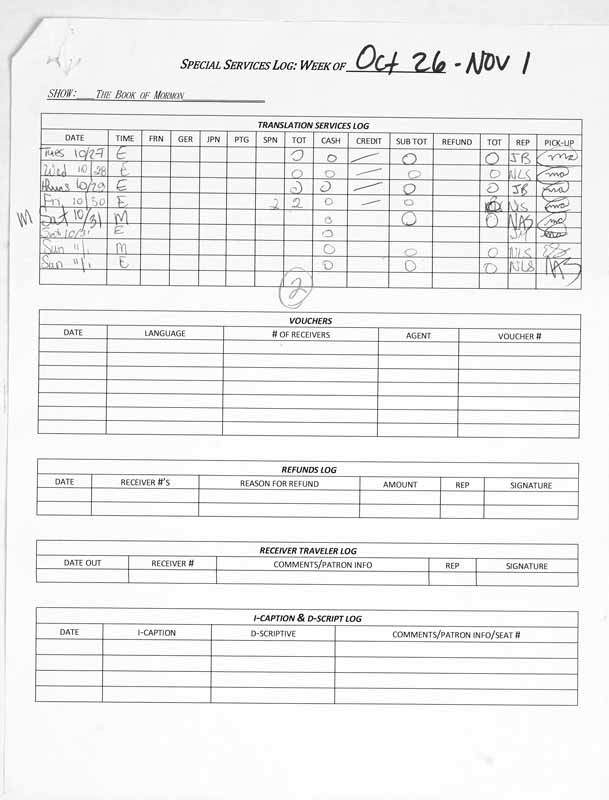 SPECIAL SERVICES LOG: WEEK OF Oct 26 - Nov 1
SHOW: THE BOOK OF MORMON
TRANSLATION SERVICES LOG
DATE TIME FRN GER JPN PTG SPN TOT CASH CREDIT SUB TOT REFUND TOT REP PICK-UP
Tues 10/27 E 0 0 — 0 0 JB ma
Wed 10/28 E 0 0 — 0 0 NLS ma
Thurs 10/29 E 0 0 — 0 0 JB ma
Fri 10/30 E 2 2 0 — 0 NS ma
M Sat 10/31 M 0 0 0 NAS ma
Sat 10/31 E 0 JM
Sun 11/1 M 0 0 0 NLS
Sun 11/1 E 0 0 0 NLS NAS
2
VOUCHERS
DATE LANGUAGE # OF RECEIVERS AGENT VOUCHER #
REFUNDS LOG
DATE RECEIVER #'S REASON FOR REFUND AMOUNT REP SIGNATURE
RECEIVER TRAVELER LOG
DATE OUT RECEIVER # COMMENTS/PATRON INFO REP SIGNATURE
I-CAPTION & D-SCRIPT LOG
DATE I-CAPTION D-SCRIPTIVE COMMENTS/PATRON INFO/SEAT #